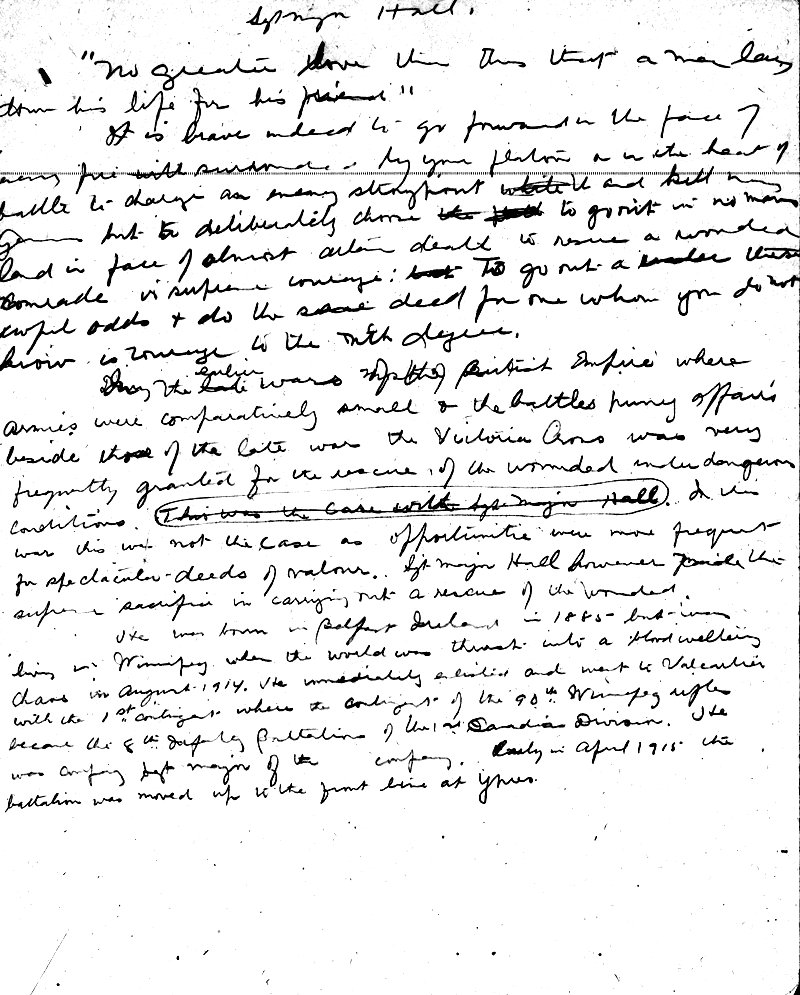 Sgt major Hall.
"No greater love then this that a man lays
down his life for his friend"
It is brave indeed to go forward in the face of
enemy fire with surrounded by your platoon or in the heat of
battle to charge an enemy strongpoint while it and kill many
Germans but to deliberately choose to go out in no mans
land in face of almost certain death to rescue a wounded
comrade is supreme courage: but To go out a under these
awful odds + do the same deed for one whom you do not
know is courage to the nth degree.
In the late earlier wars of the British Empire where
armies were comparatively small & the battles puny affairs
beside those of the late war the Victoria Cross was very
frequently granted for the rescue of the wounded under dangerous
conditions. This was the case with Sgt major Hall. In this
war this was not the case as opportunities were more frequent
for spectacular deeds of valour. Sgt major Hall however made the
supreme sacrifice in carrying out a rescue of the wounded.
He was born in Belfast Ireland in 1885 but was
living in Winnipeg when the world was thrust into a bloodwelling
chaos in August 1914. He immediately enlisted and went to Valcartier
with the 1st contingent where the contingent of the 90th Winnipeg rifles
became the 8th Infantry Battalion of the 1st Canadian Division. He
was company Sgt major of the company. Early in April 1915 the
battalion was moved up to the front line at Ypres.